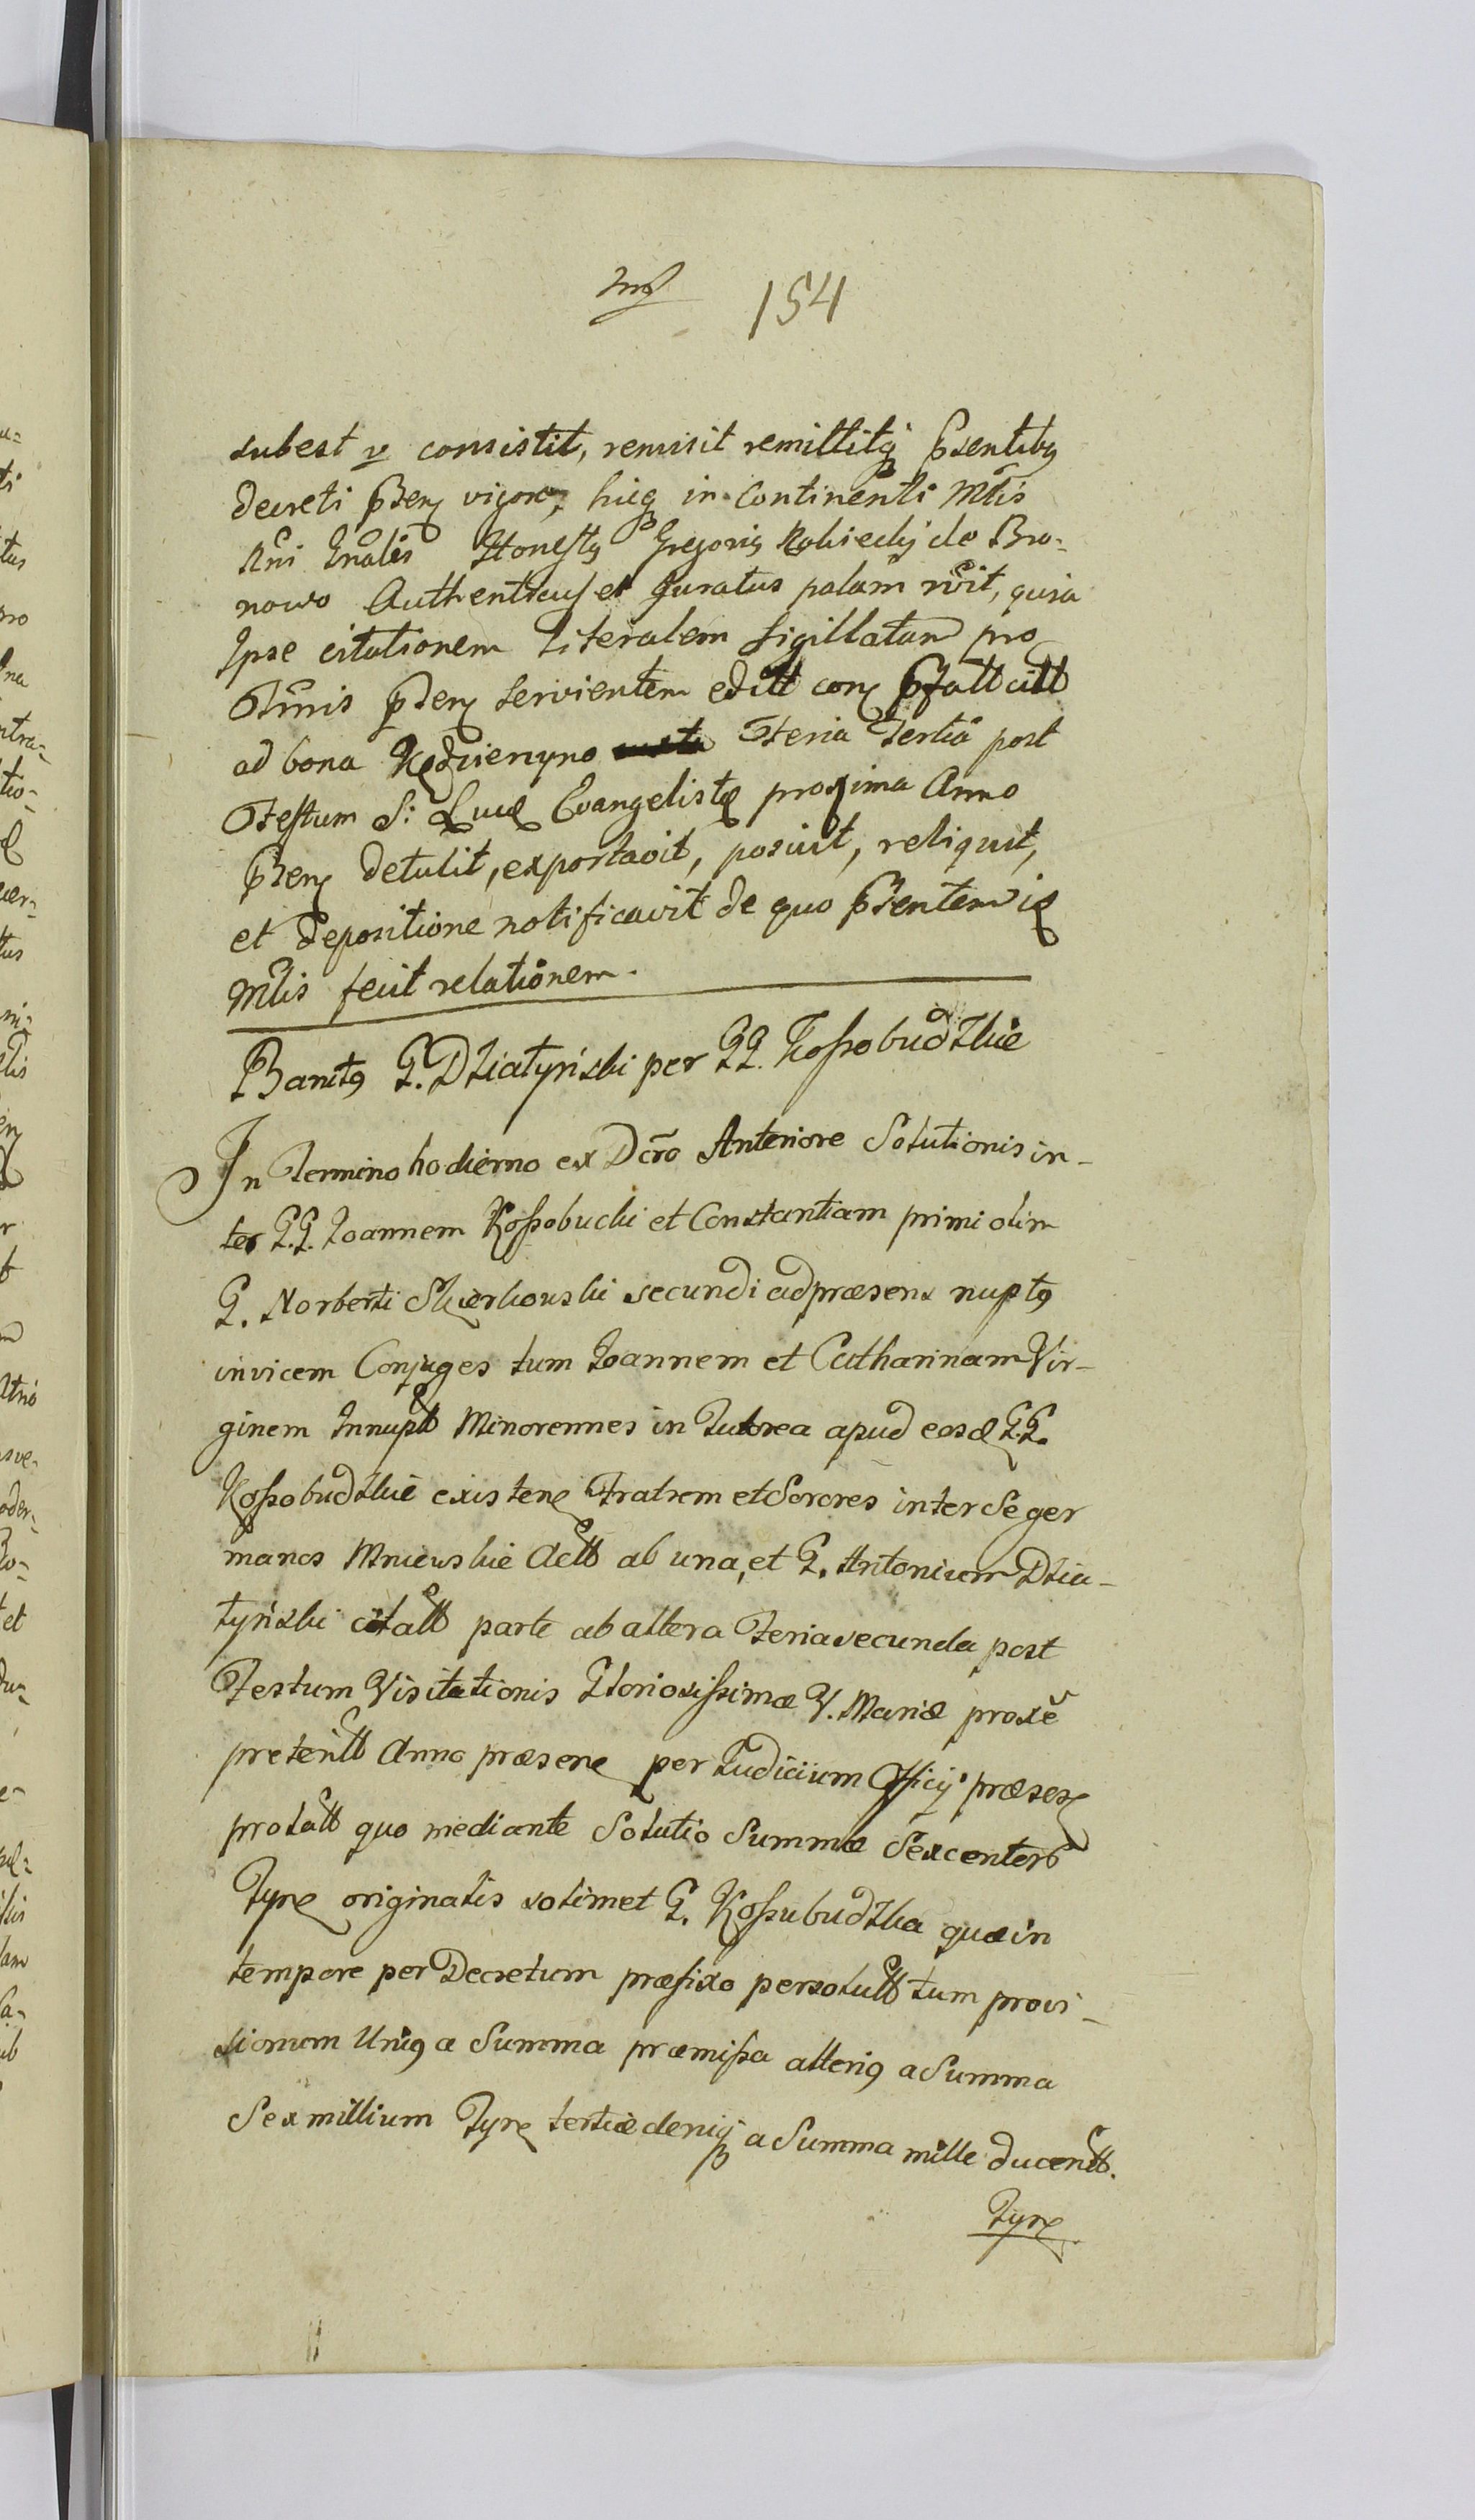 154
subest v consistit, remisit remittitq ꝑsentibꝰ
decreti ꝑsen vigore, hicq in Continenti Mtis
Rni Gnalis Honestꝰ Gregoriꝰ de Bro-
nowo Authenticus et Juratus palam rcit, quia
Ipse citationem literalem sigillatam pro
Tmis ꝑsen servientem editt con ꝑfatt citt
ad bona Feria Tertia post
Festum S: Lucæ Evangelistæ proxima Anno
ꝑsen detulit, exportavit, posuit, reliquit,
et depositione notificavit de quo ꝑsentem is
Mtis fecit relationem.
Banitꝰ G. Działyński per GG. Kossobudzkie
In Termino hodierno ex Dcro Anteriore Solutionis in-
ter G.G. Joannem Kossobucki et Constantiam primi olim
G. Norberti secundi ad præsens nuptꝰ
invicem Conjuges tum Joannem et Catharinam Vir-
ginem Innupt Minorennes in Tutorea apud eosd G.G.
Kossobudzkie existen Fratrem et Sorores inter se ger
manos Mniewskie Actt ab una, et G. Antonium Dzia-
łyński citatt parte ab altera Feria secunda post
Festum Visitationis Gloriosissimæ V. Mariæ proxe
preteritt Anno præsen per Judicium Officij præsen
prolatt quo mediante Solutio Summæ Sexcentor
Tyn originalis solimet G. Kossubudzka quæ in
tempore per Decretum præfixo persolutt tum provi-
sionum Uniꝰ a Summa præmissa alteriꝰ a Summa
Sex millium Tyn tertiæ deniq a Summa mille ducentt.
Tyn